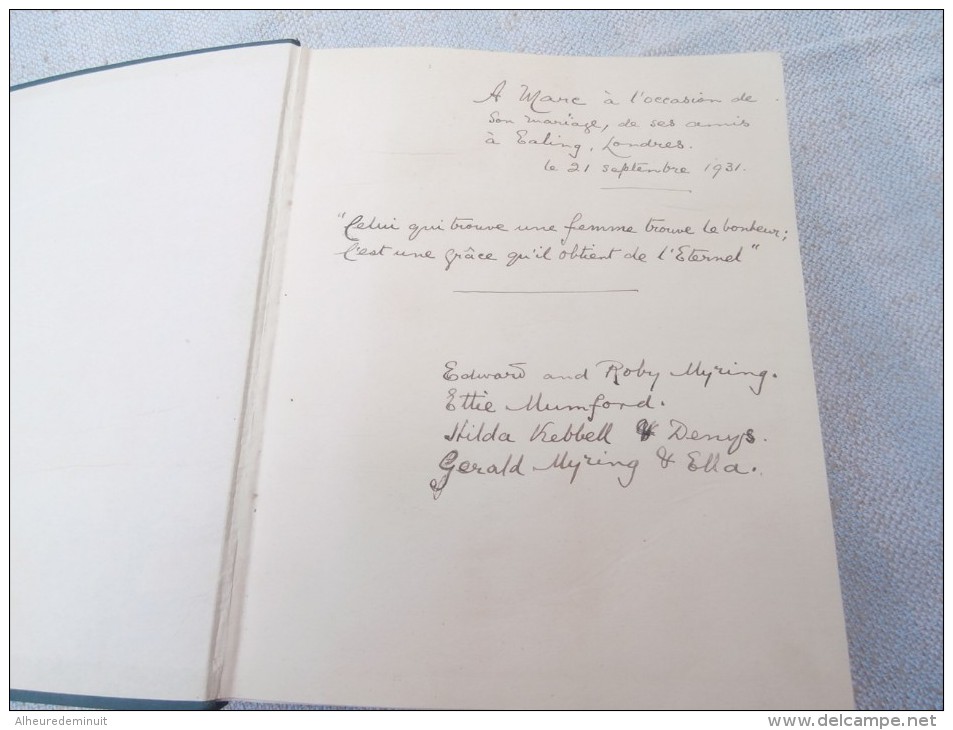 A Marc à l'occasion de
son mariage, de ses amis
à Ealing, Londres.
le 21 septembre 1931.
"Celui qui trouve une femme trouve le bonheur;
C'est une grâce qu'il obtient de l'Eternel"
Edward and Roby Myring.
Ettie Mumford.
Hilda Kebbell & Denys.
Gerald Myring & Ella.
Alheuredeminuit
www.delcampe.net